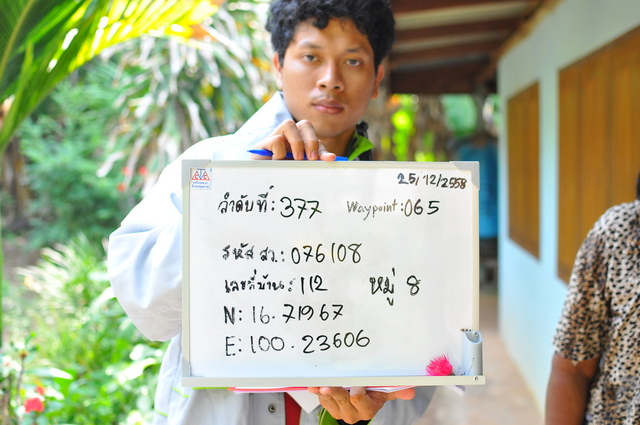 25/12/2558
ลำดับที่: 377 Waypoint: 065
รหัส สว.: 076108
เลขที่บ้าน: 112 หมู่ 8
N: 16.71967
E: 100.23606